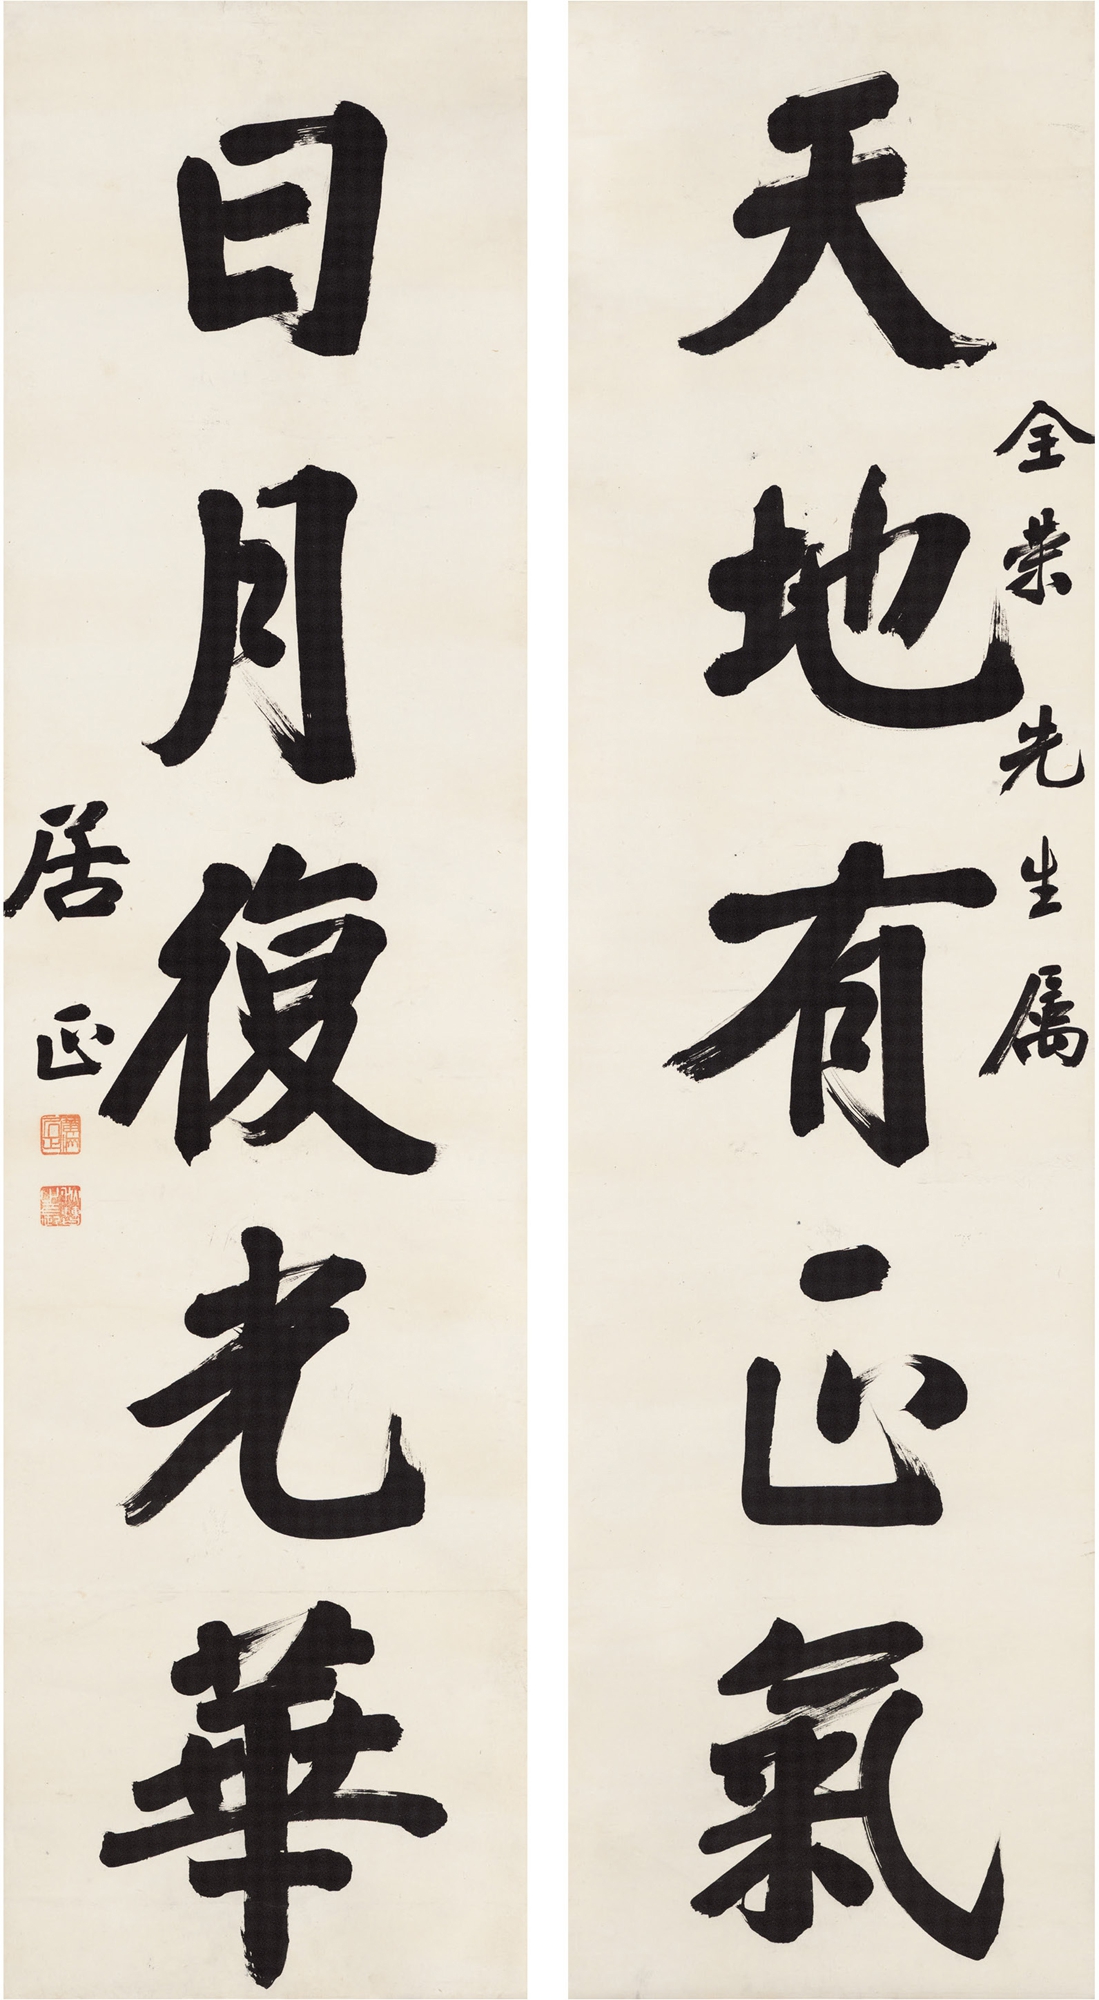 天地有正氣
全荣先生属
日月復光華
居正